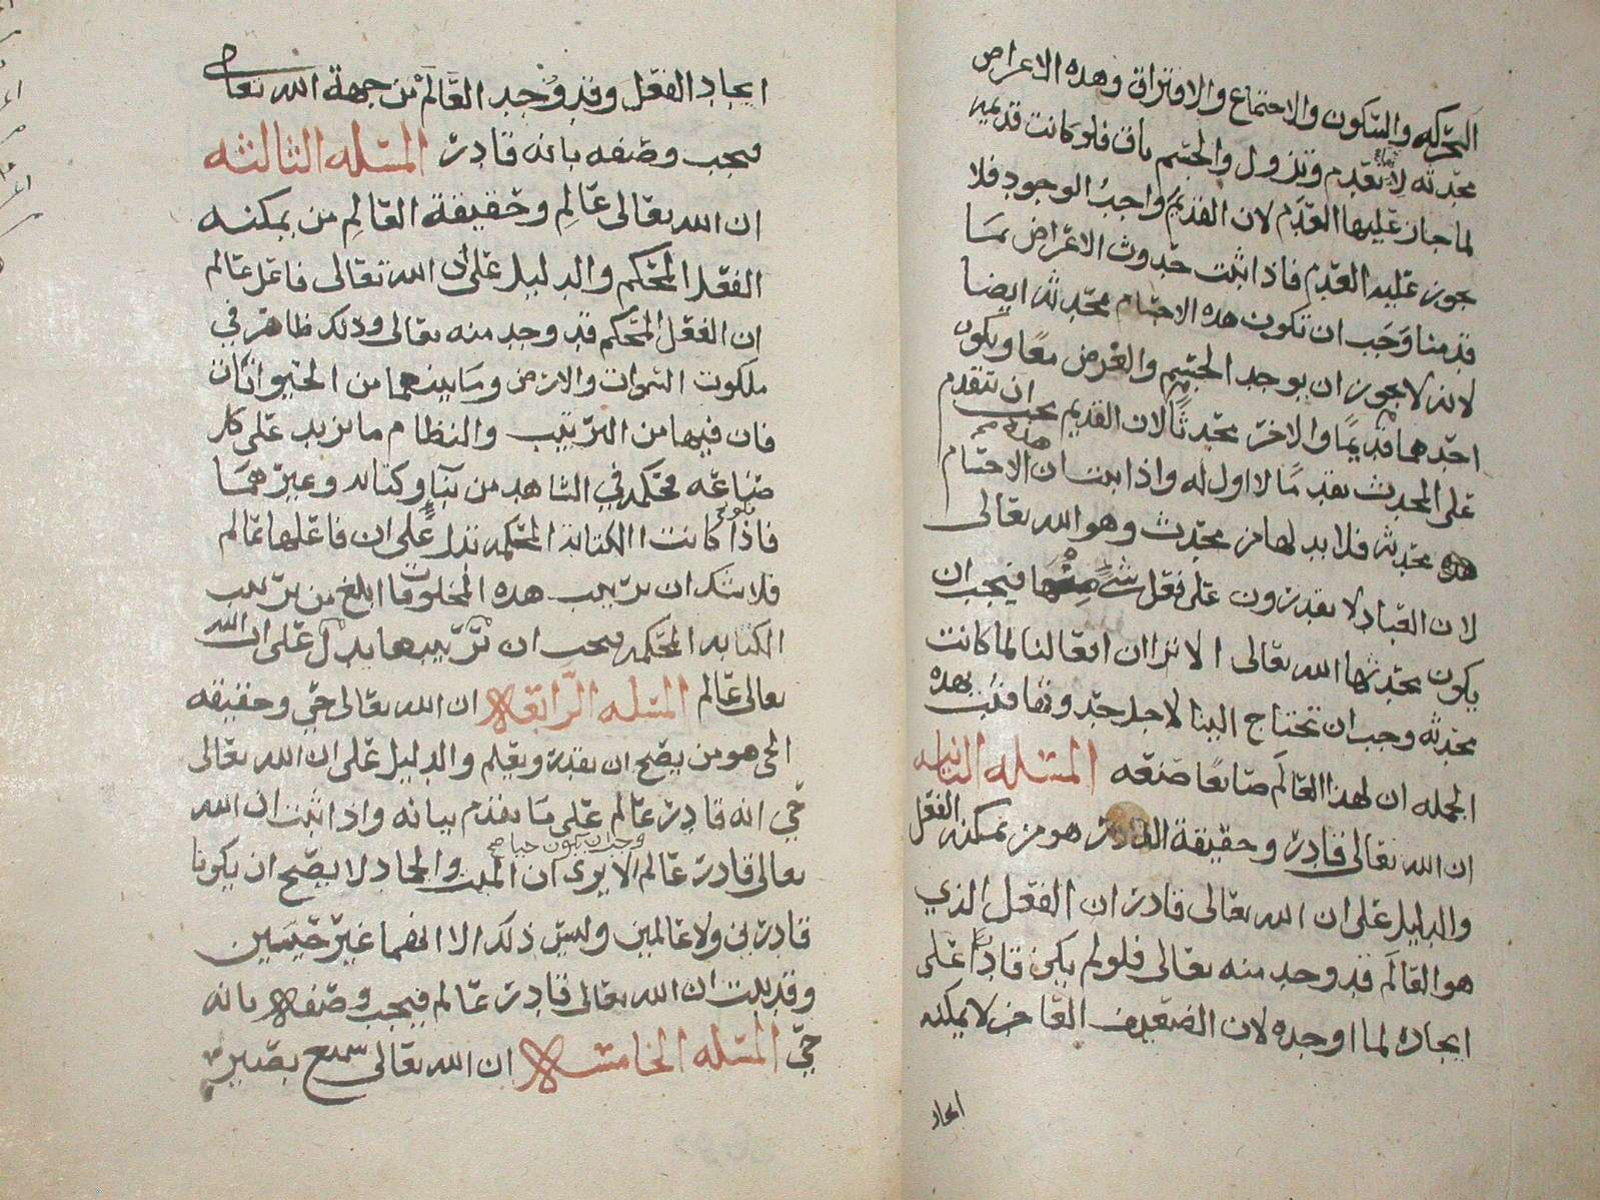 الحركه والسكون والاجتماع والافتراق وهذه الاعراض
محدثه لانها تعدم وتزول والجسم باق فلو كانت قديمه
لما جاز عليها العدم لان القديم واجب الوجود فلا
يجوز عليه العدم فاذا ثبت حدوث الاعراض بما
قدمنا وجب ان تكون هذه الاجسام محدثه ايضا
لانه لا يجوز ان يوجد الجسم والعرض معا ويكون
احدهما قديما والاخر محدثا لان القديم يجب ان يتقدم
على المحدث تقدما لا اول له واذا ثبت ان هذه الاجسام
محدثه فلا بد لها من محدث وهو الله تعالى
لان العباد لا يقدرون على فعل شي منها فيجب ان
يكون محدثها الله تعالى الا ترا ان افعالنا لما كانت
محدثه وجب ان تحتاج الينا لاجل حدوثها فثبت بهذه
الجمله ان لهذا العالم صانعا صنعه المسئله الثانيه
ان الله تعالى قادر وحقيقة القادر هو من يمكنه الفعل
والدليل على ان الله تعالى قادر ان الفعل الذي
هو العالم قد وجد منه تعالى فلو لم يكن قادرا على
ايجاده لما اوجده لان الضعيف العاجز لا يمكنه
ايجاد
ايجاد الفعل وقد وجد العالم من جهة الله تعالى
فيجب وصفه بانه قادر المسئله الثالثه
ان الله تعالى عالم وحقيقة العالم من يمكنه
الفعل المحكم والدليل على ان الله تعالى فاعل عالم
ان الفعل المحكم قد وجد منه تعالى وذلك ظاهر في
ملكوت السموات والارض وما بينهما من الحيوانات
فان فيها من الترتيب والنظام ما يزيد على كل
صناعه محكمه في الشاهد من بناء وكتابه وغيرهما
فاذا كانت الكتابة المحكمه تدل على ان فاعلها عالم
فلا شك ان ترتيب هذه المخلوقات ابلغ من ترتيب
الكتابه المحكمه فيجب ان ترتيبها يدل على ان الله
تعالى عالم المسئله الرابعه ان الله تعالى حي وحقيقه
الحي هو من يصح ان يقدر ويعلم والدليل على ان الله تعالى
حي انه قادر عالم على ما تقدم بيانه واذا ثبت ان الله
وجب ان يكون حيا صح
تعالى قادر عالم الا يرى ان الميت والجماد لا يصح ان يكونا
قادرين ولا عالمين وليس ذلك الا انهما غير حيين
وقد ثبت ان الله تعالى قادر عالم فيجب وصفه بانه
حي المسئله الخامسه ان الله تعالى سميع بصير